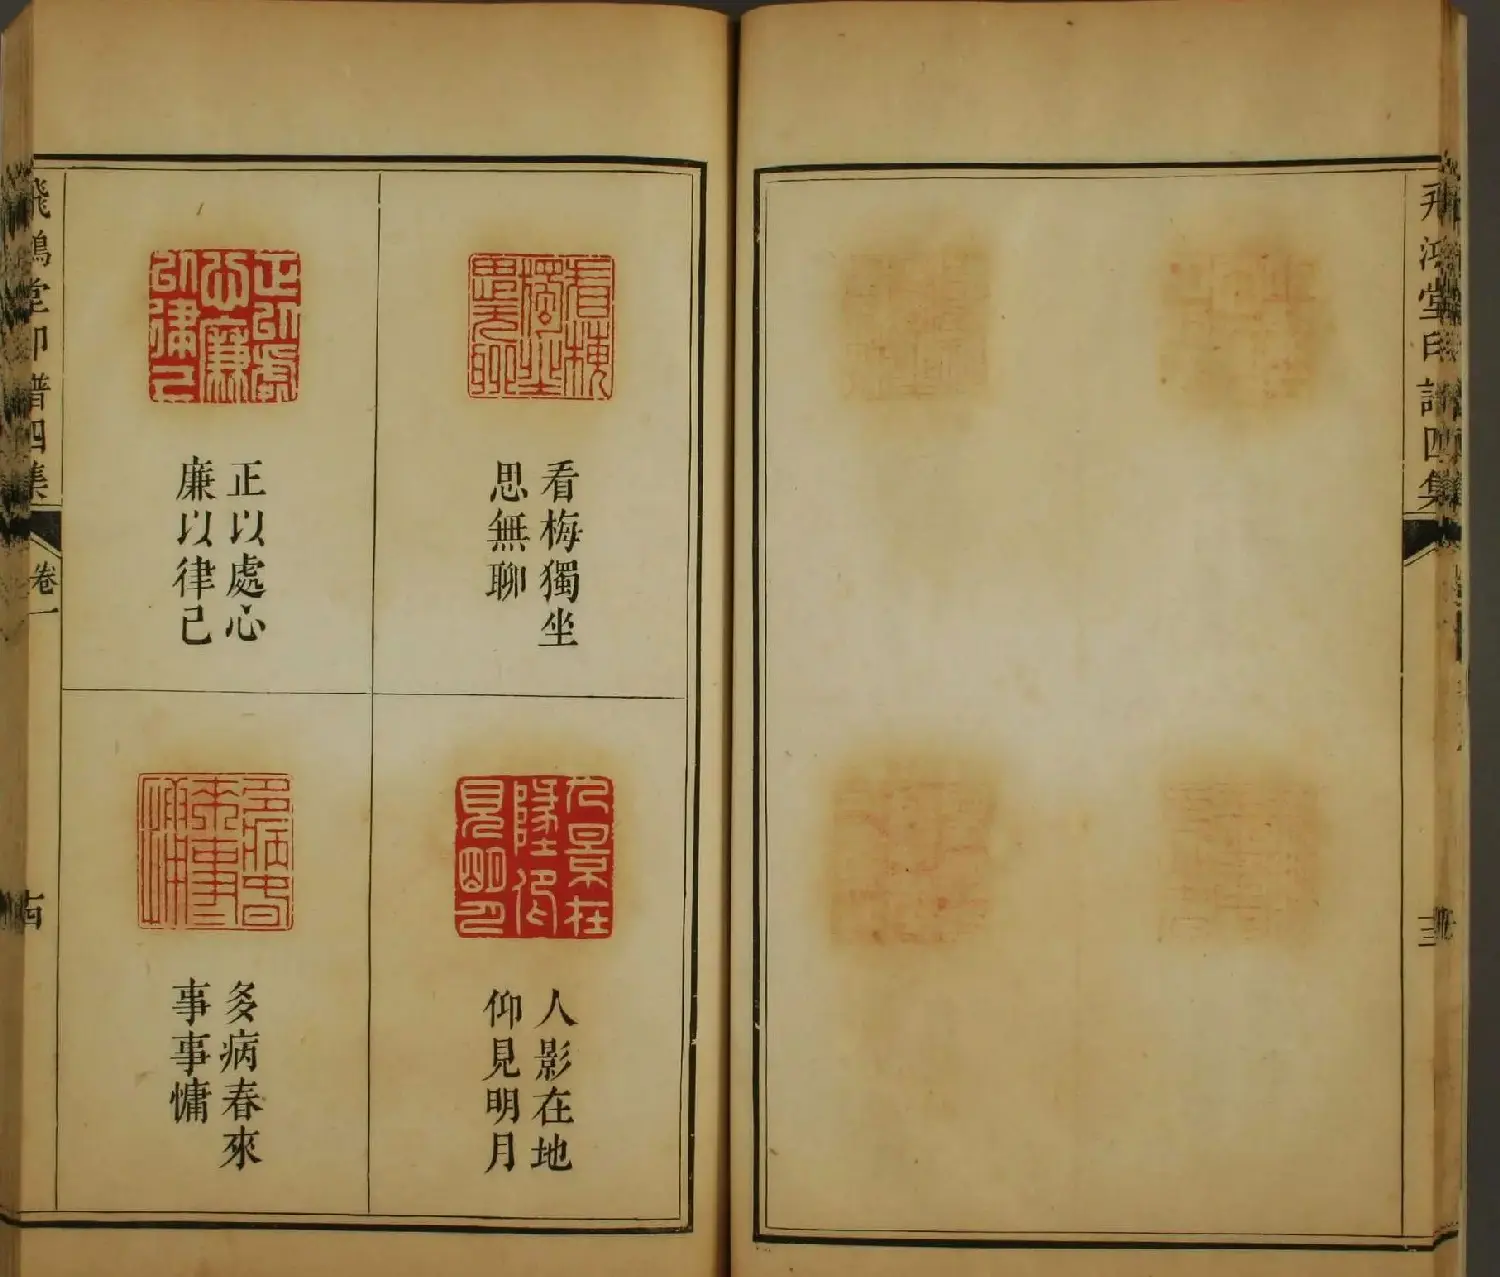 飛鴻堂印譜四集
看梅獨坐
思無聊
人影在地
仰見明月
正以處心
廉以律己
多病春來
事事慵
飛鴻堂印譜四集
卷一